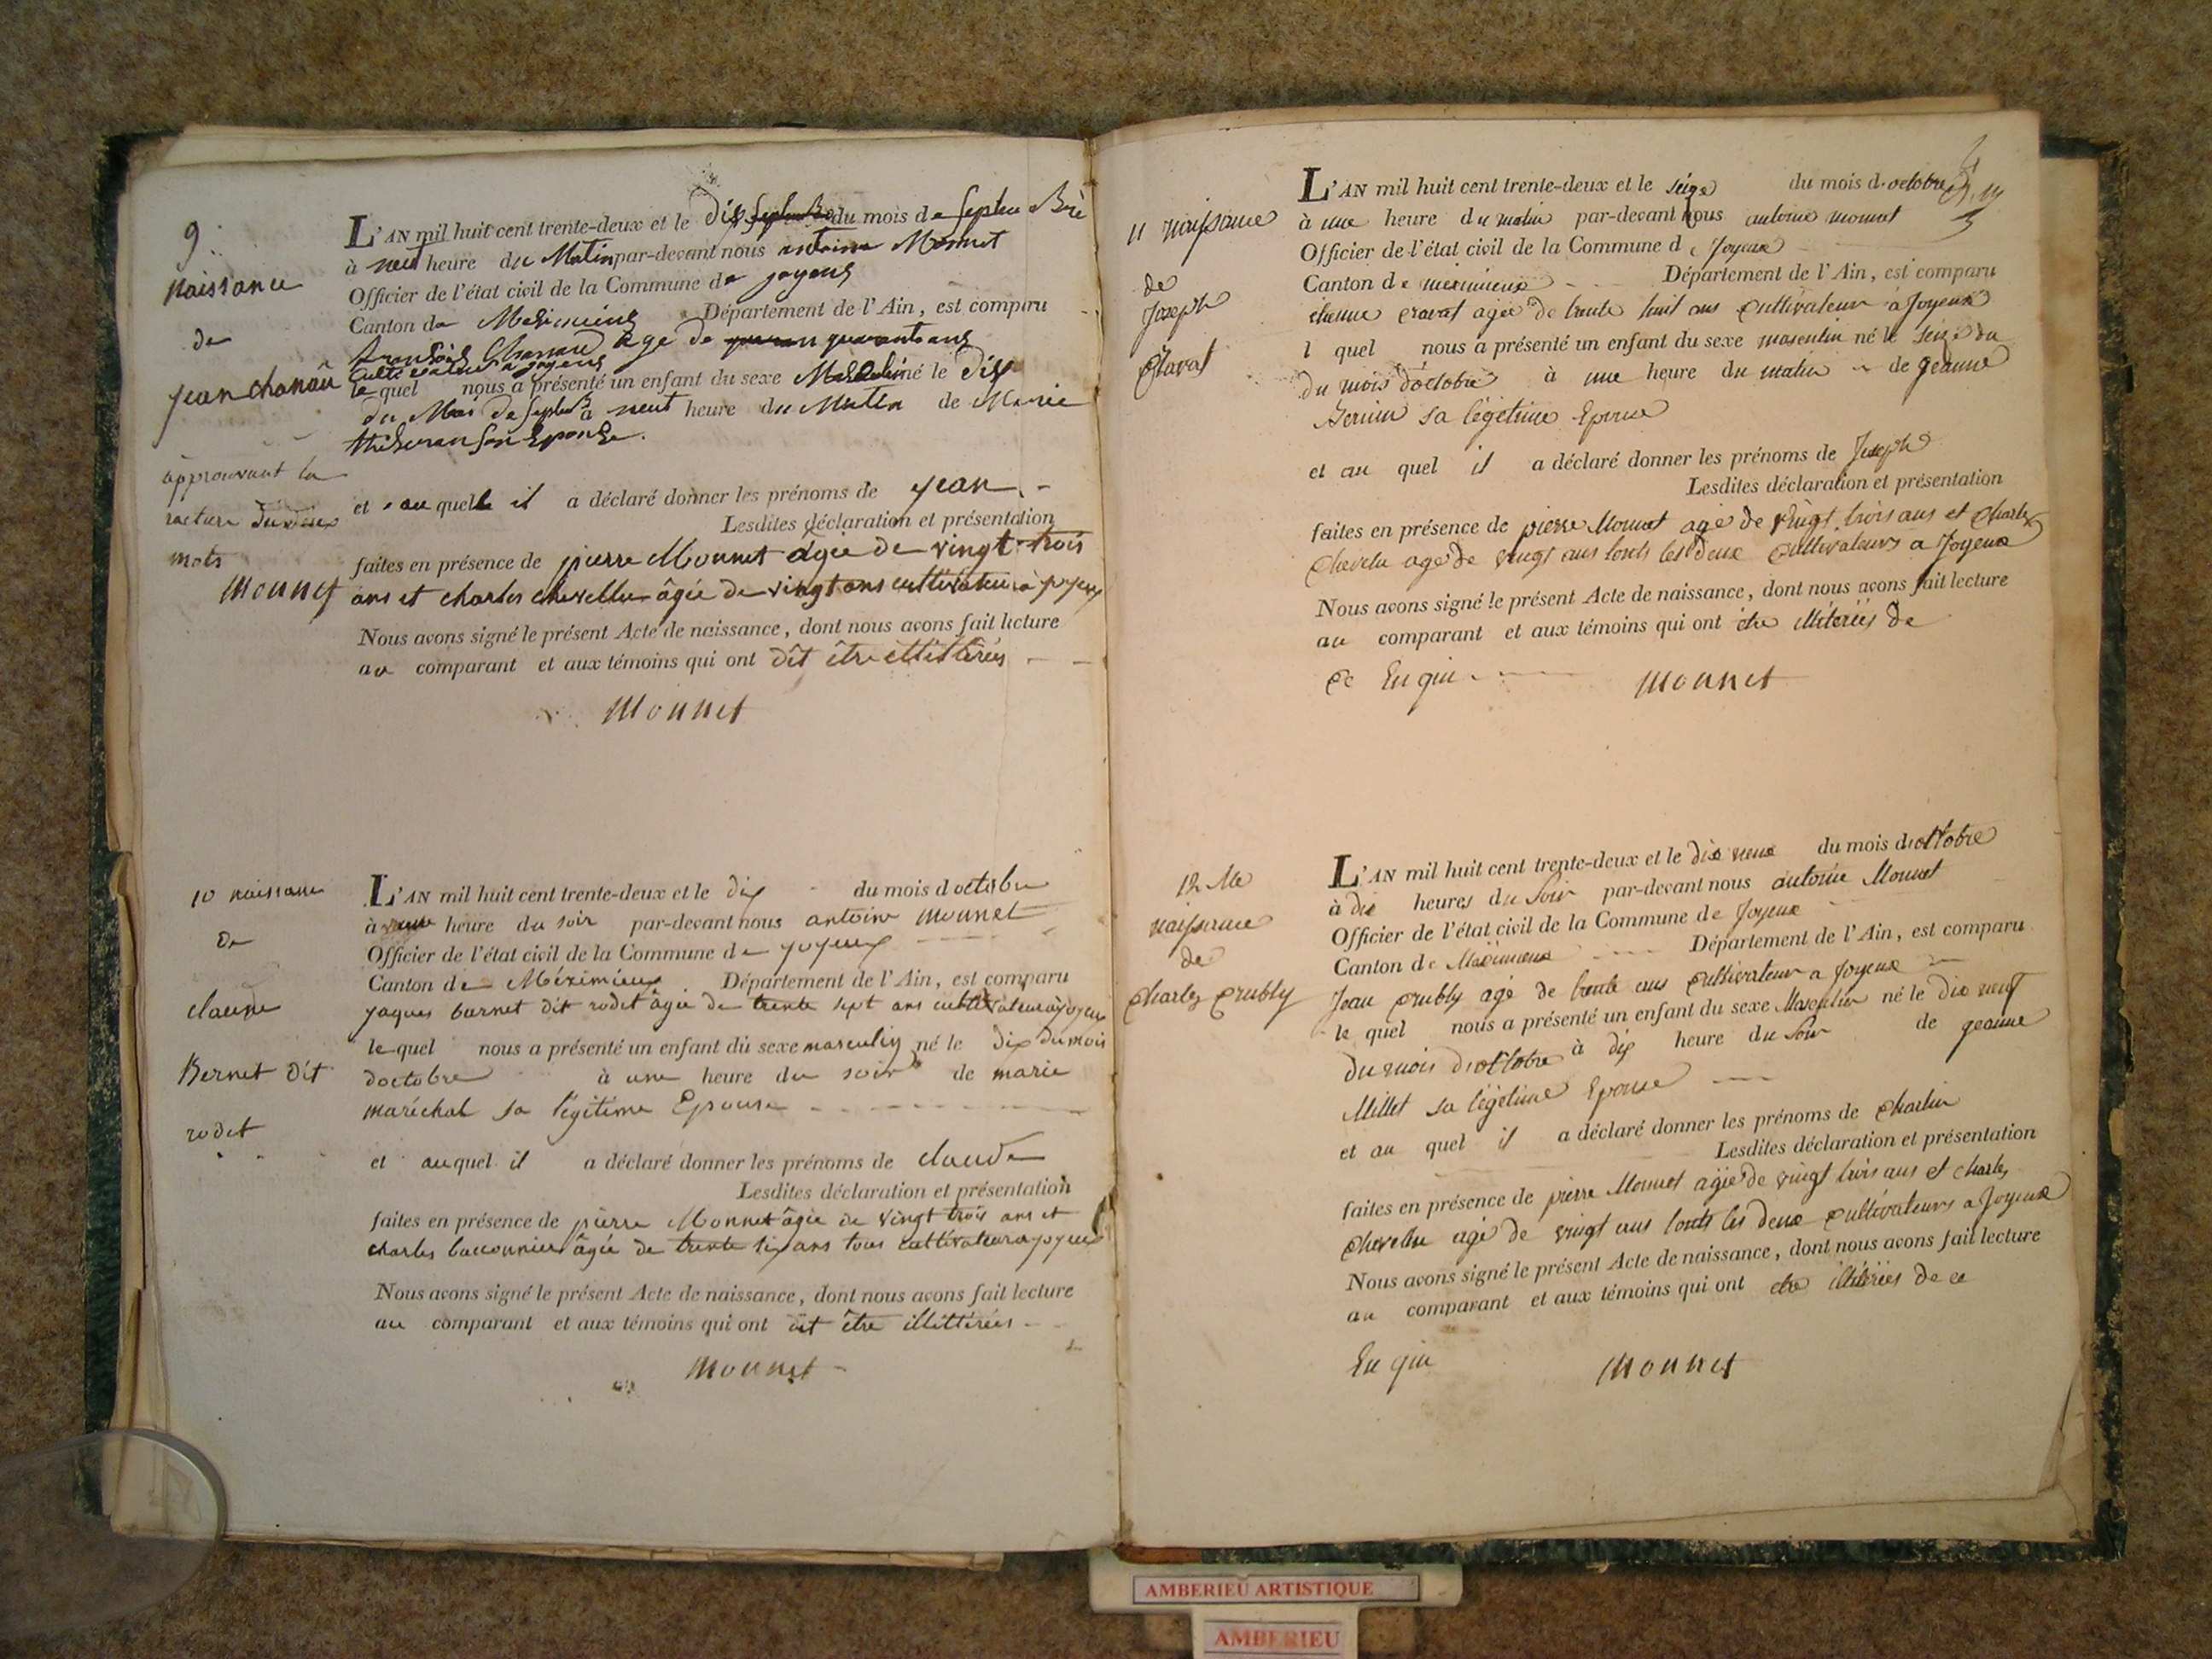 9.
naissance
de
jean chanau
approuvant la
rature du deux
mots
Monnet
L'AN mil huit cent trente-deux et le dix du mois de Septembre
à neuf heure du Matin par-devant nous antoine Monnet
Officier de l'état civil de la Commune de joyeux
Canton de Meximieux Département de l'Ain, est comparu
françois Chanau age de quarante ans
cultivateur a joyeux
le quel nous a présenté un enfant du sexe Masculin né le Dix
du Mois de Septbre à neuf heure du Matin de Marie
son Epouse.
et au quel il a déclaré donner les prénoms de jean
Lesdites déclaration et présentation
faites en présence de pierre Monnet âgée de vingt-trois
ans et charles chevellu âgée de vingt ans cultivateur à joyeux
Nous avons signé le présent Acte de naissance, dont nous avons fait lecture
au comparant et aux témoins qui ont dît être illittérés
Monnet
10 naissance
de
claude
Bernet dit
rodet
L'AN mil huit cent trente-deux et le dix du mois d octobre
à une heure du soir par-devant nous antoine Monnet
Officier de l'état civil de la Commune de joyeux
Canton de Méximieux Département de l'Ain, est comparu
jaques bernet dit rodet âgée de trente sept ans cultivateur à joyeux
le quel nous a présenté un enfant du sexe masculin né le dix du mois
doctobre à une heure du soir de marie
maréchal sa légitime Epouse
et au quel il a déclaré donner les prénoms de claude
Lesdites déclaration et présentation
faites en présence de pierre Monnet âgée de vingt trois ans et
charles bacconnier âgée de trente six ans tous cultivateur a joyeux
Nous avons signé le présent Acte de naissance, dont nous avons fait lecture
au comparant et aux témoins qui ont dit être illittérés
Monnet
11 naissance
de
Joseph
Cravat
L'AN mil huit cent trente-deux et le seize du mois d. octobre
à une heure du matin par-devant nous antoine monnet
Officier de l'état civil de la Commune de Joyeux
Canton de meximieux Département de l'Ain, est comparu
etienne cravat agée de trente huit ans Cultivateur a Joyeux
l quel nous a présenté un enfant du sexe masculin né le seize du
du mois d'octobre à une heure du matin de Jeanne
sa légetime Epouse
et au quel il a déclaré donner les prénoms de Joseph
Lesdites déclaration et présentation
faites en présence de pierre Monnet age de vingt trois ans et Charles
Chevelu age de vingt ans touts les deux Cultivateurs a Joyeux
Nous avons signé le présent Acte de naissance, dont nous avons fait lecture
au comparant et aux témoins qui ont etre illiteriés de
ce Enquis
Monnet
12 Me
naissance
de
Charles Crubly
L'AN mil huit cent trente-deux et le dix neuf du mois d octobre
à dix heures du soir par-devant nous antoine Monnet
Officier de l'état civil de la Commune de Joyeux
Canton de Maximieux Département de l'Ain, est comparu
Jean Crubly agé de trente ans Cultivateur a Joyeux
le quel nous a présenté un enfant du sexe Masculin né le dix neuf
du mois d'octobre à dix heure du soir de jeanne
Millet sa légetime Epouse
et au quel il a déclaré donner les prénoms de Charles
Lesdites déclaration et présentation
faites en présence de pierre Monnet agée de vingt trois ans et Charles
Chevelu agé de vingt ans touts les deux Cultivateurs a Joyeux
Nous avons signé le présent Acte de naissance, dont nous avons fait lecture
au comparant et aux témoins qui ont etre illiteriés de ce
Enquis
Monnet
AMBERIEU ARTISTIQUE
AMBERIEU